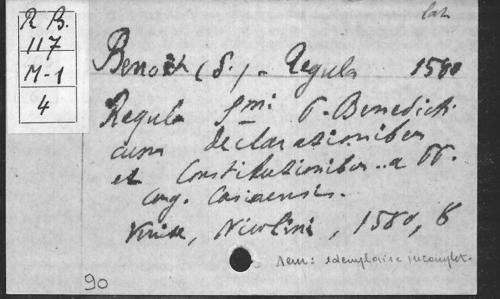 lat.
R B.
117
M-1
4
Benoît (S.) - Regula 1580
Regula Smi P. Benedicti
cum declarationibus
et Constitutionibus a PP.
cong. Casinensis.
Venise, Nicolini, 1580, 8
Rem: exemplaire incomplet.
90